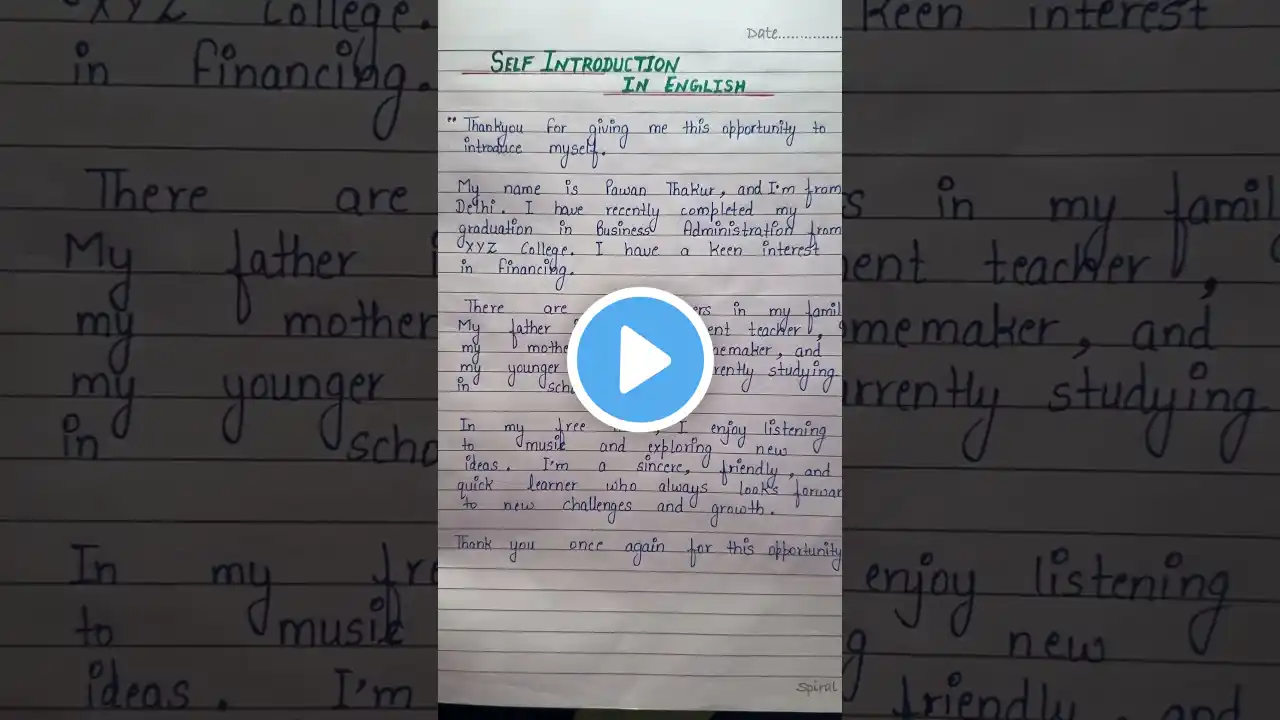 Date..............
SELF INTRODUCTION
IN ENGLISH
"Thankyou for giving me this opportunity to
introduce myself.
My name is Pawan Thakur, and I'm from
Delhi. I have recently completed my
graduation in Business Administration from
"XYZ College. I have a keen interest
in financing.
There are ers in my famil
My father ent teacher,
my mothe memaker, and
my younger rrently studying
in scho
In my free , I enjoy listening
to music and exploring new
ideas. I'm a sincere, friendly, and
quick learner who always looks forwar
to new challenges and growth.
Thank you once again for this opportunity
Spiral